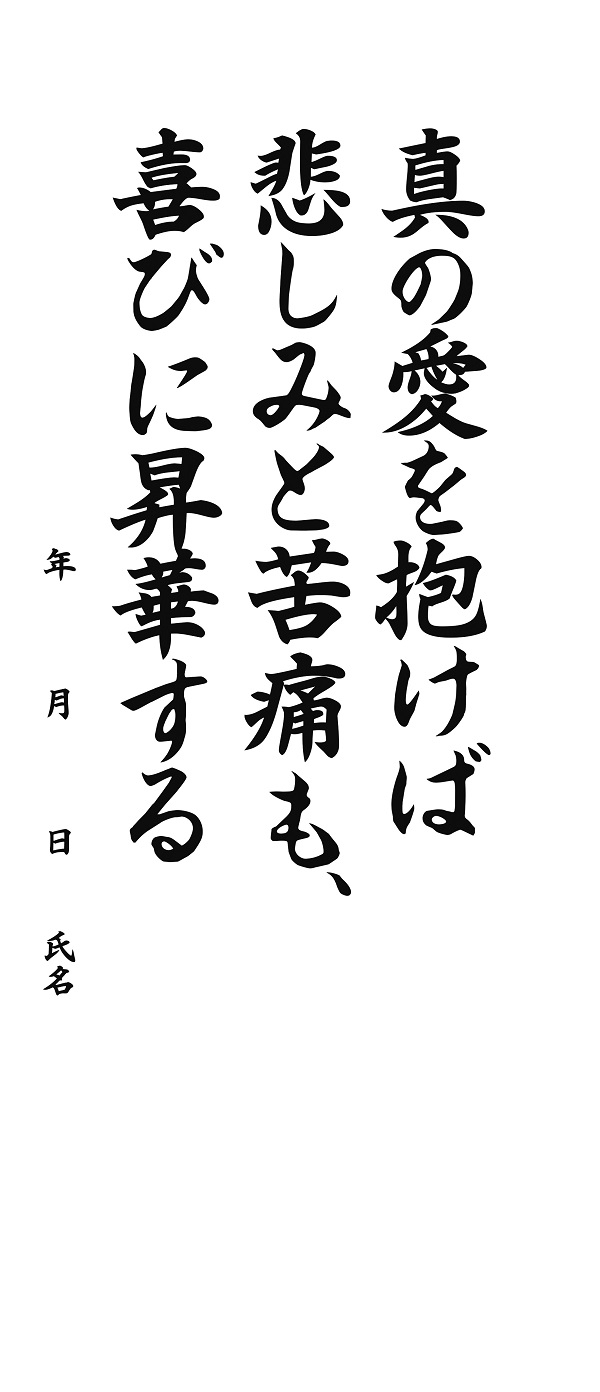 真の愛を抱けば
悲しみと苦痛も、
喜びに昇華する
年 月 日 氏名